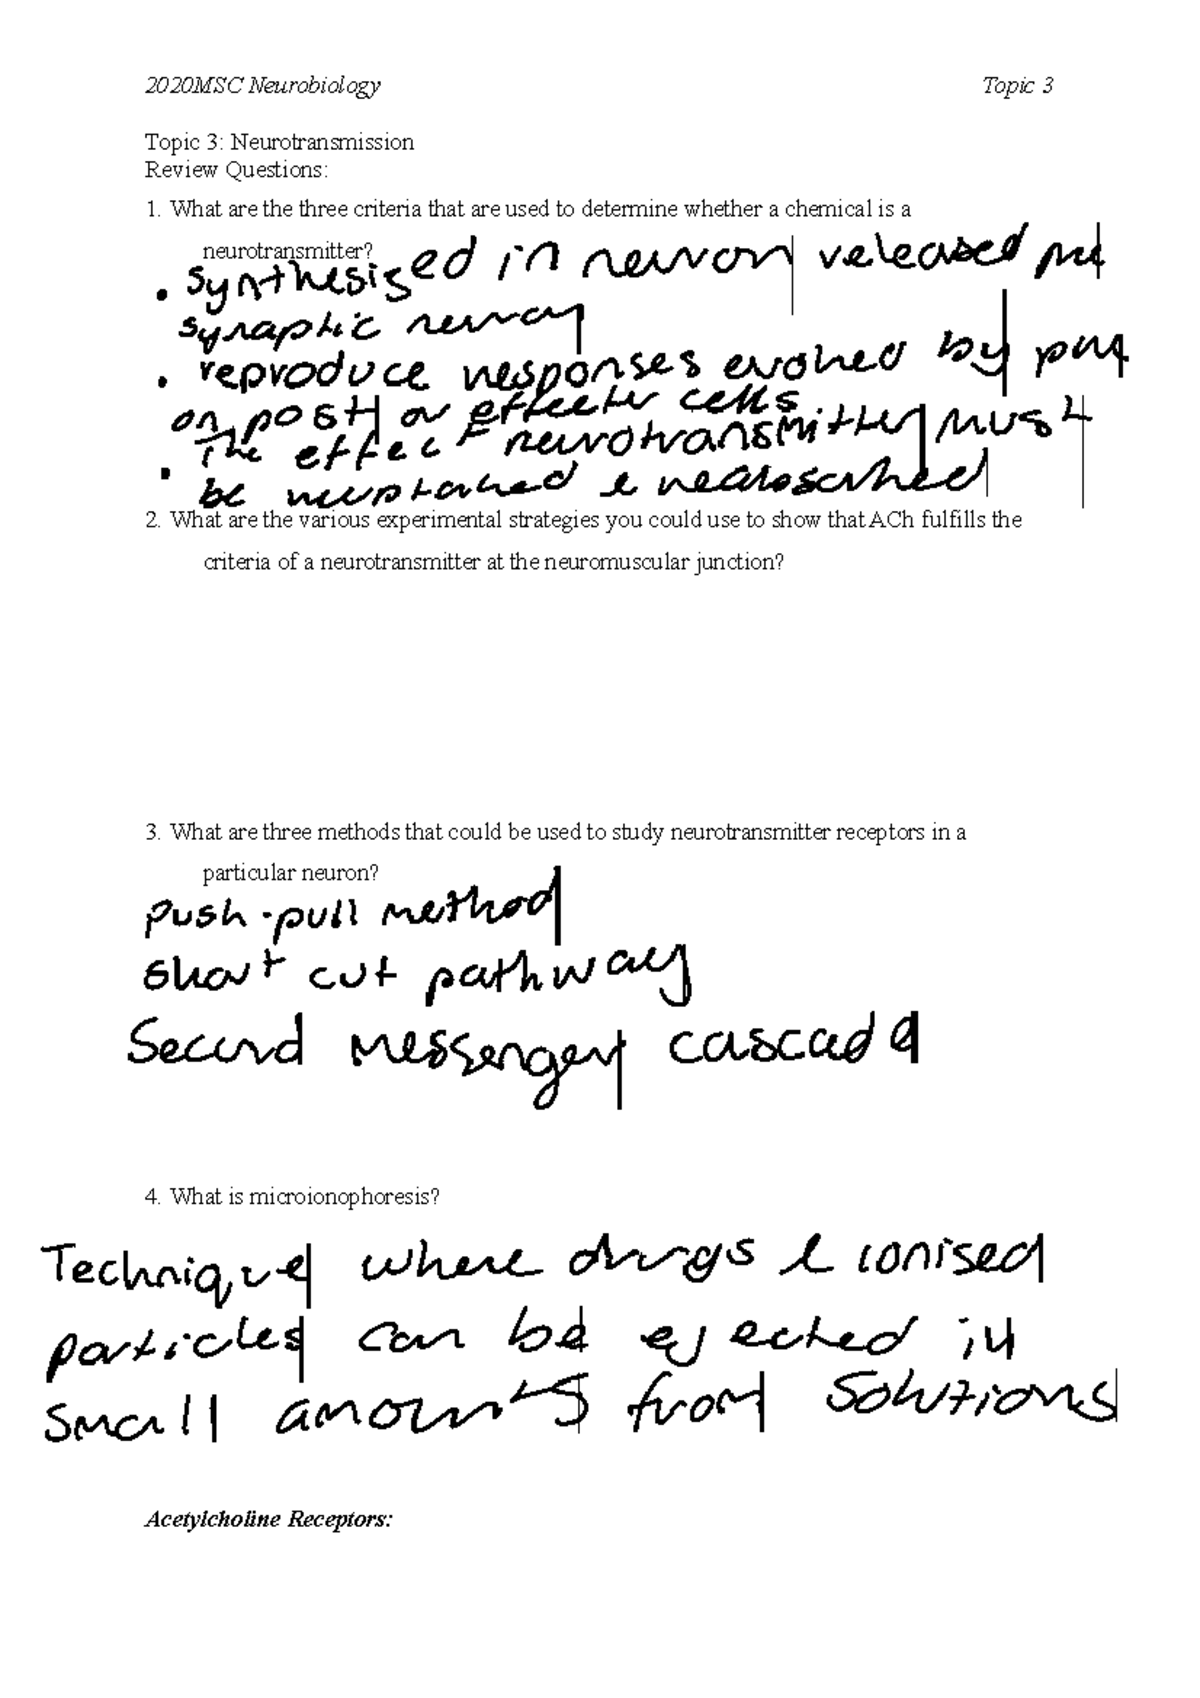 2020MSC Neurobiology Topic 3
Topic 3: Neurotransmission
Review Questions:
1. What are the three criteria that are used to determine whether a chemical is a
neurotransmitter?
• synthesized in neuron released
synaptic
• reproduce responses evoked by
on post or effector cells
• The effect neurotransmitter must
be &
2. What are the various experimental strategies you could use to show that ACh fulfills the
criteria of a neurotransmitter at the neuromuscular junction?
3. What are three methods that could be used to study neurotransmitter receptors in a
particular neuron?
push-pull method
short cut pathway
Second messenger cascade
4. What is microionophoresis?
Technique where drugs & ionised
particles can be ejected in
small amounts from solutions
Acetylcholine Receptors: